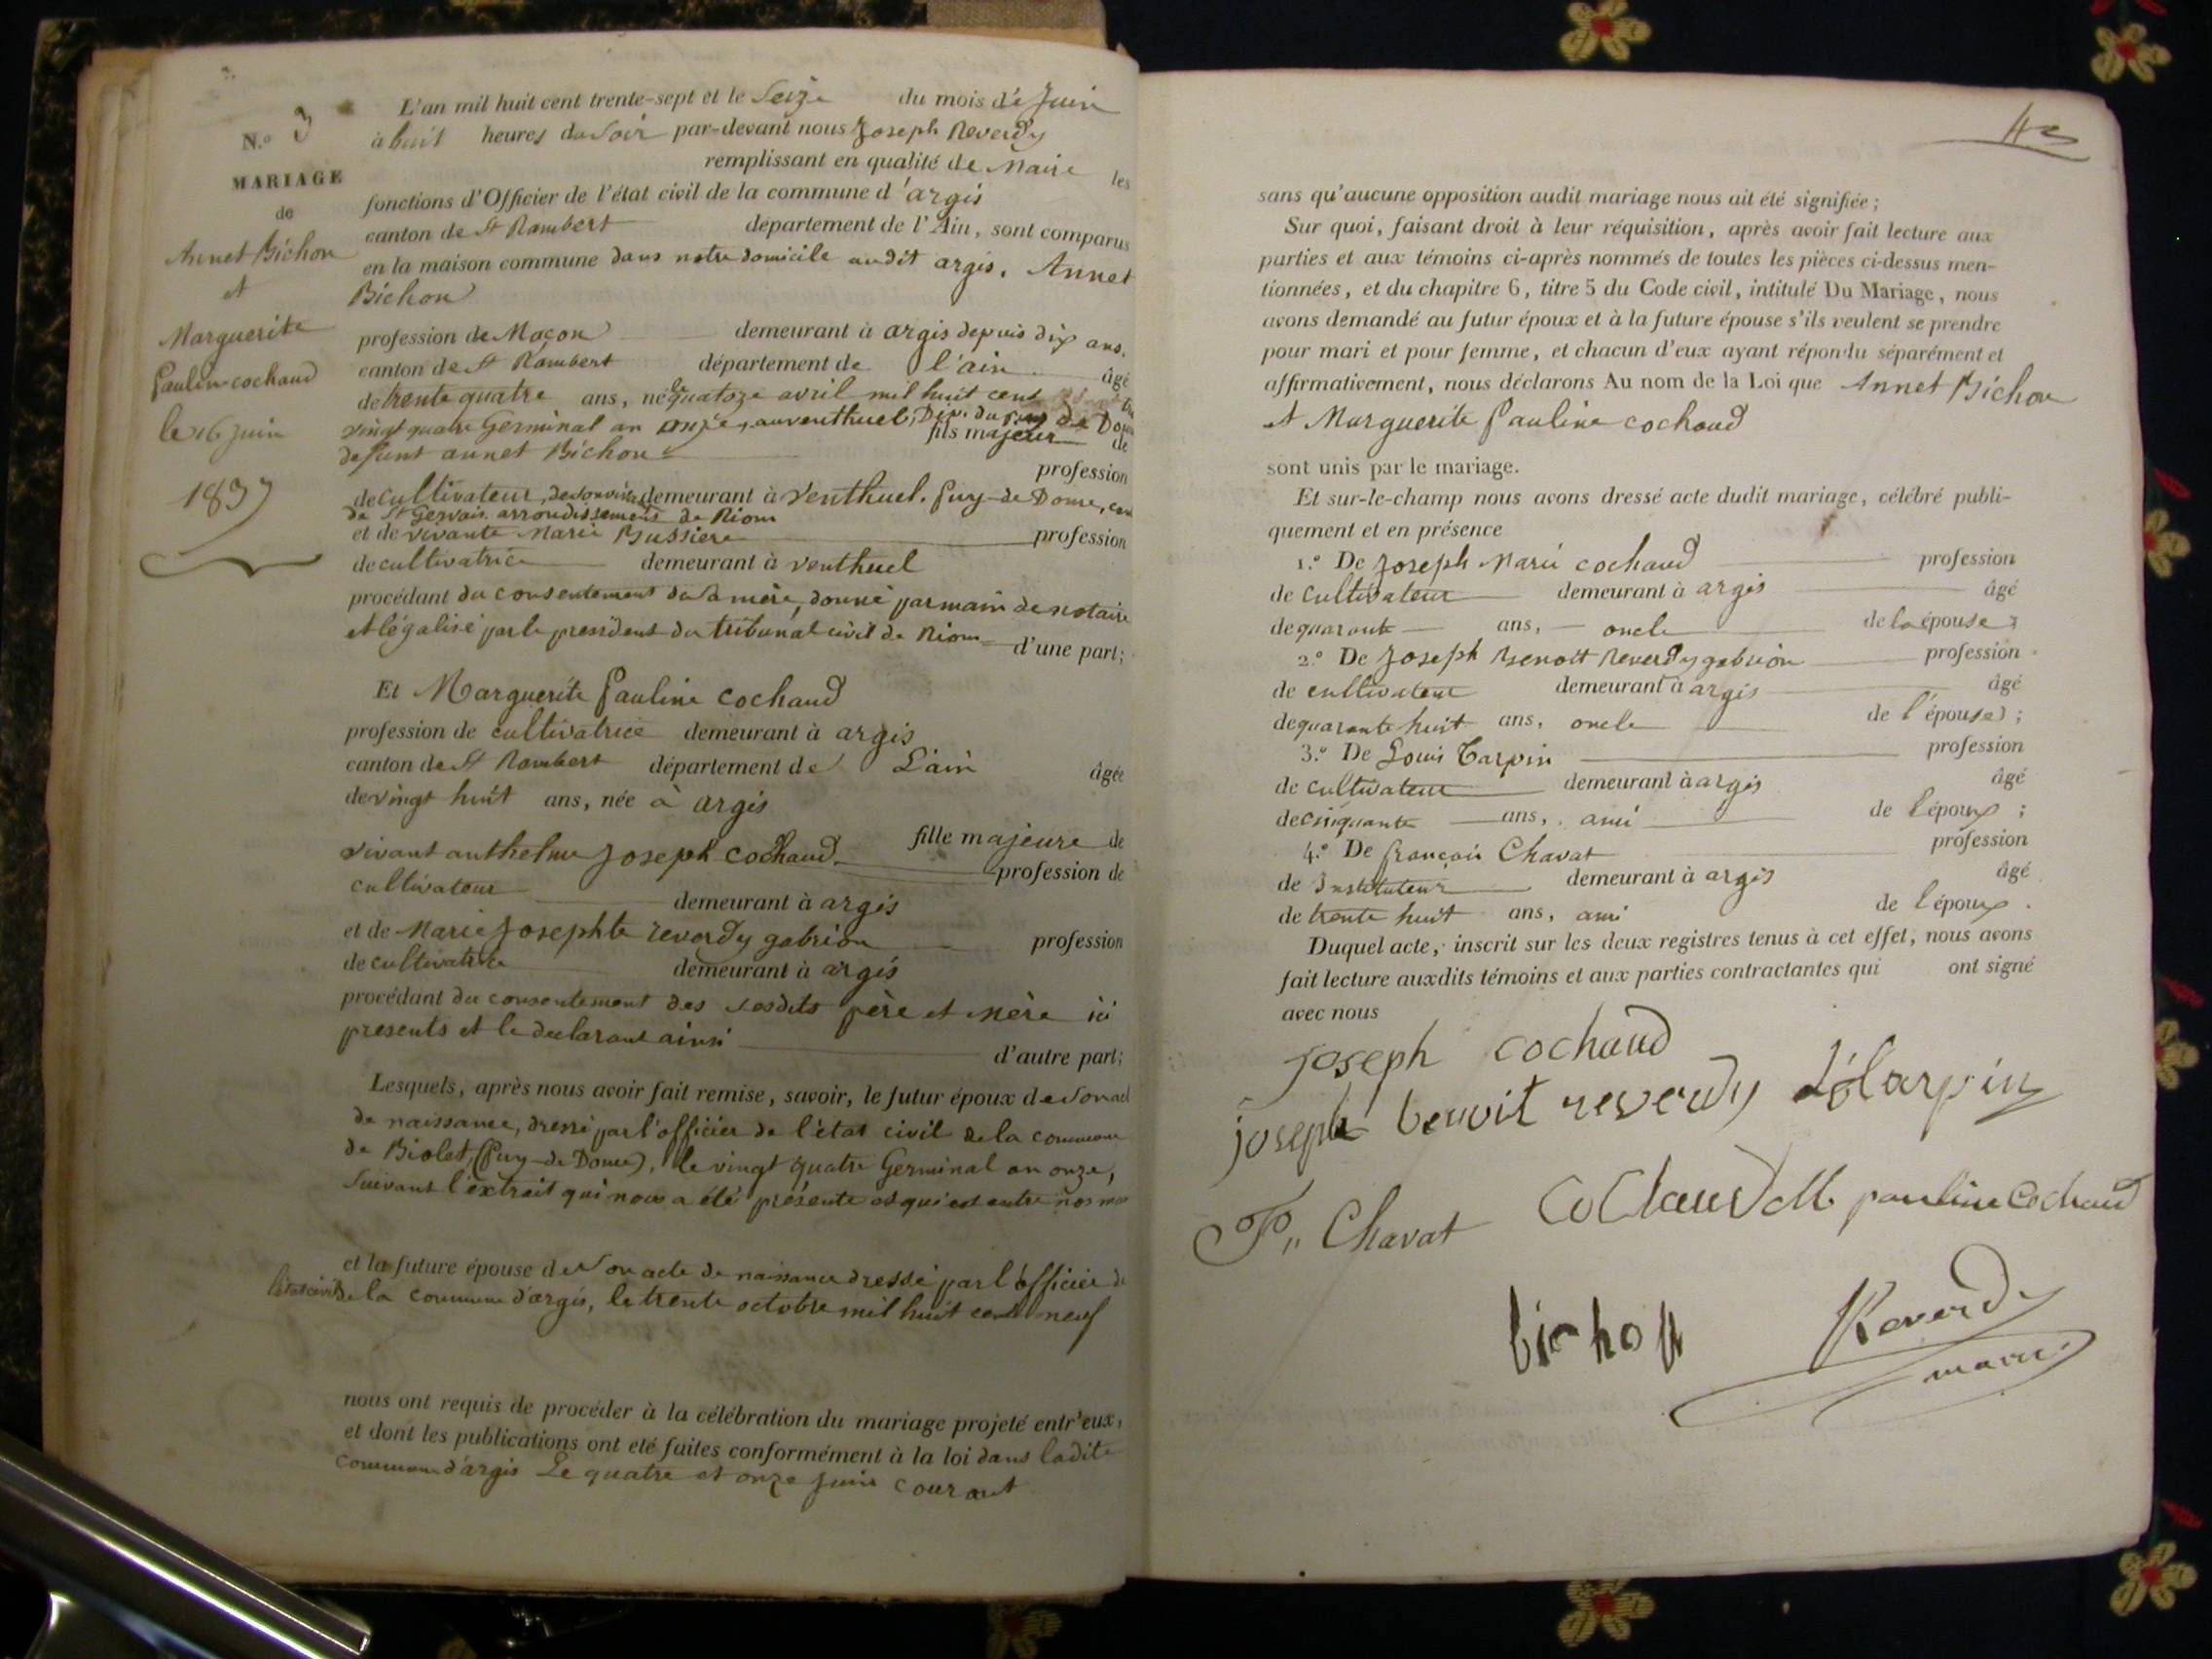 N.º 3
MARIAGE
de
Annet Bichon
et
Marguerite
Pauline cochaud
le 16 juin
1837
L'an mil huit cent trente-sept et le Seize du mois de Juin
à huit heures du Soir par-devant nous Joseph Reverdy
remplissant en qualité de Maire les
fonctions d'Officier de l'état civil de la commune d'argis
canton de St Rambert département de l'Ain, sont comparus
en la maison commune dans notre domicile audit argis, Annet
Bichon
profession de Maçon demeurant à argis depuis dix ans.
canton de St Rambert département de l'ain âgé
de trente quatre ans, né le quatoze avril mil huit cent
vingt quatre Germinal an onze, au venthuel, Dép. du puy de Dome
fils majeur de
defunt annet Bichon
profession
de cultivateur, de son vivant demeurant à Venthuel. Puy-de Dome, can
de St Gervais arrondissement de Riom
et de vivante Marie Bussiere profession
de cultivatrice demeurant à venthuel
procédant du consentement de Sa mère, donné par main de notaire
et légalisé par le president du tribunal civil de Riom d'une part;
Et Marguerite Pauline cochaud
profession de cultivatrice demeurant à argis
canton de St Rambert département de L'ain âgée
de vingt huit ans, née à argis
fille majeure de
vivant anthelme Joseph cochaud profession de
cultivateur demeurant à argis
et de Marie Josephte reverdy gabrion profession
de cultivatrice demeurant à argis
procédant du consentement des susdits père et mère ici
presents et le declarant ainsi d'autre part;
Lesquels, après nous avoir fait remise, savoir, le futur époux de Son act
de naissance, dressé par l'officier de l'état civil de la commune
de Biolet, (Puy-de Dome), le vingt quatre Germinal an onze,
Suivant l'extrait qui nous a été présenté et qui est entre nos mai
et la future épouse de Son acte de naissance dressé par l'officier de
l'état civil de la commune d'argis, le trente octobre mil huit cent neuf
nous ont requis de procéder à la célébration du mariage projeté entr'eux,
et dont les publications ont eté faites conformément à la loi dans ladite
commune d'argis Le quatre et onze juin courant
sans qu'aucune opposition audit mariage nous ait été signifiée;
Sur quoi, faisant droit à leur réquisition, après avoir fait lecture aux
parties et aux témoins ci-après nommés de toutes les pièces ci-dessus men-
tionnées, et du chapitre 6, titre 5 du Code civil, intitulé Du Mariage, nous
avons demandé au futur époux et à la future épouse s'ils veulent se prendre
pour mari et pour femme, et chacun d'eux ayant répondu séparément et
affirmativement, nous déclarons Au nom de la Loi que Annet Bichon
et Marguerite Pauline cochaud
sont unis par le mariage.
Et sur-le-champ nous avons dressé acte dudit mariage, célébré publi-
quement et en présence
1.º De Joseph Marie cochaud profession
de Cultivateur demeurant à argis âgé
de quarante ans, oncle de la épouse;
2.º De Joseph Benoit Reverdy gabrion profession
de cultivateur demeurant à argis âgé
de quarante huit ans, oncle de l'épouse;
3.º De Louis Tarpin profession
de cultivateur demeurant à argis âgé
de cinquante ans, ami de l'époux;
4.º De françois Chavat profession
de Instituteur demeurant à argis âgé
de trente huit ans, ami de l'époux.
Duquel acte, inscrit sur les deux registres tenus à cet effet, nous avons
fait lecture auxdits témoins et aux parties contractantes qui ont signé
avec nous
Joseph cochaud
joseph benoit reverdy L Tarpin
F. Chavat Cochaud M pauline Cochaud
bichon Reverdy
maire